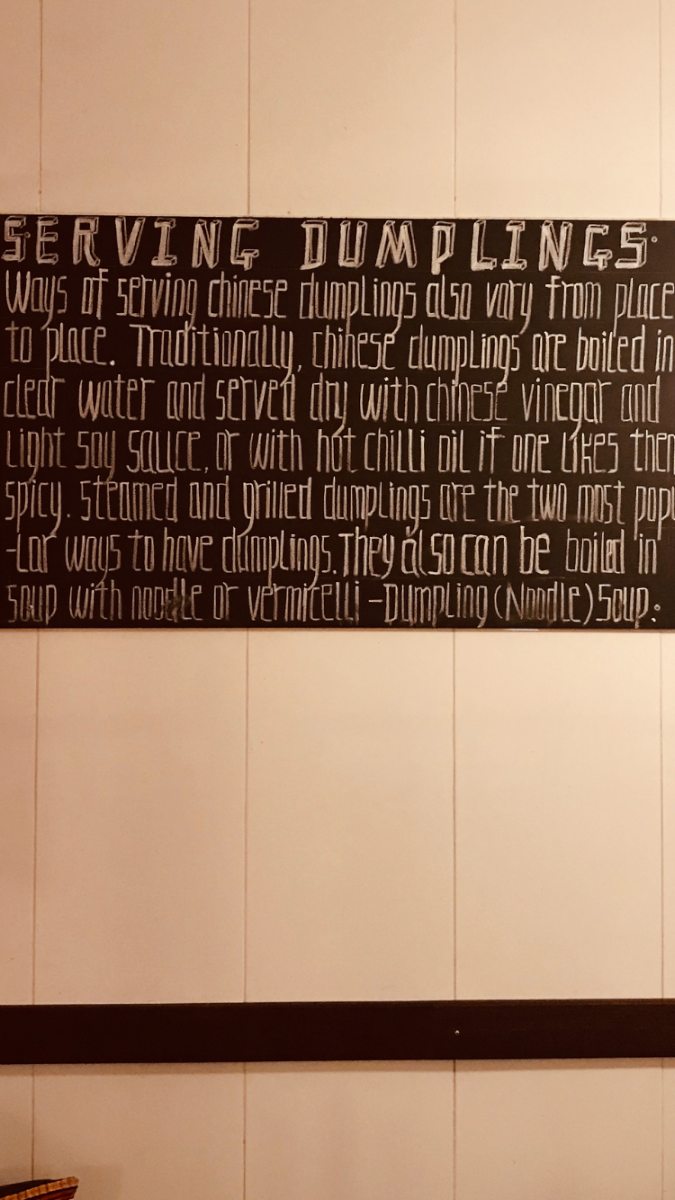 SERVING DUMPLINGS.
Ways of serving chinese dumplings also vary from place
to place. Traditionally, chinese dumplings are boiled in
clear water and served dry with chinese vinegar and
light soy sauce, or with hot chilli oil if one likes them
spicy. Steamed and grilled dumplings are the two most popu
-lar ways to have dumplings. They also can be boiled in
soup with noodle or vermicelli -Dumpling (Noodle) Soup.